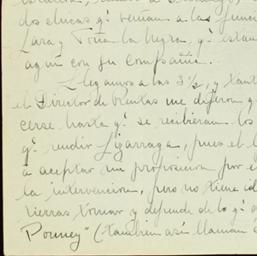 dos chicas qᵉ venían a las func
Lara y Tina la Negra, qᵉ estan
aquí con su Compañía.
Llegamos a las 3½, y tant
el Director de Rentas me dijeron q
cerse hasta qᵉ se recibieran los
qᵉ rendir Ligarraga, pues el
a aceptar un proposicion por e
la intervencion, pero no tiene id
tierras tomar y depende de lo qᵉ
Pouney" (tambien así llaman